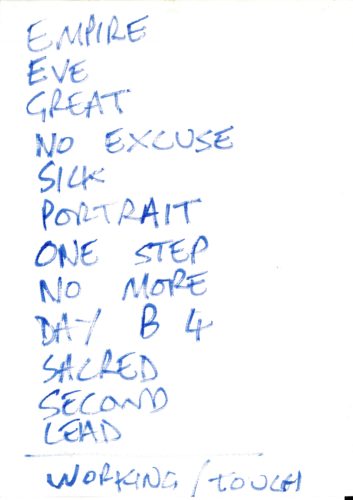 EMPIRE
EVE
GREAT
NO EXCUSE
SICK
PORTRAIT
ONE STEP
NO MORE
DAY B 4
SACRED
SECOND
LEAD
WORKING / TOUCH